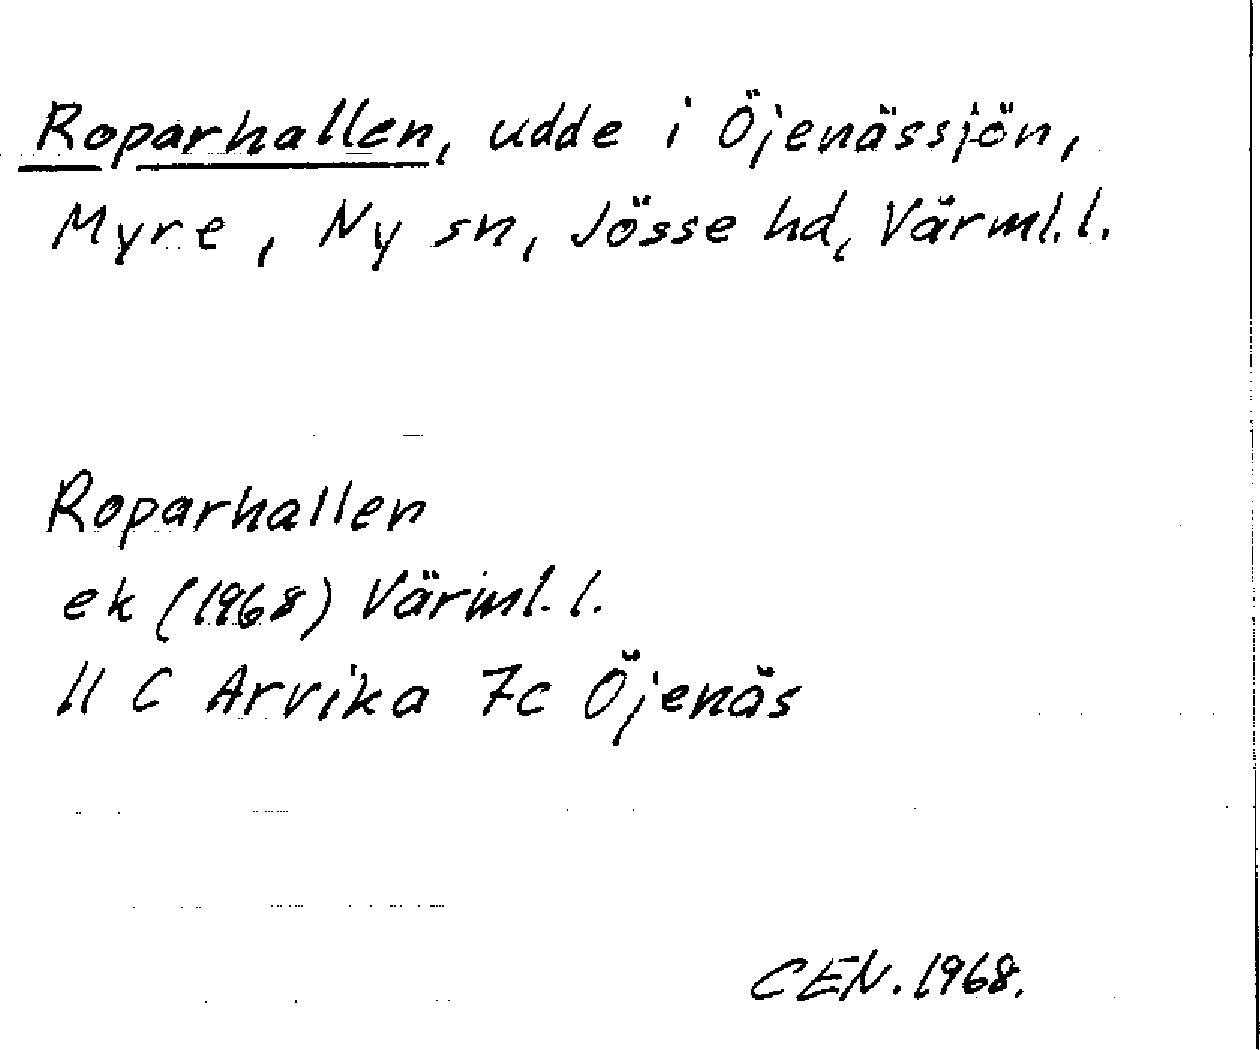 Roparhallen, udde i Öjenässjön,
Myre, Ny sn, Jösse hd, Värml. l.
Roparhallen
ek (1968) Värml. l.
11 C Arvika 7c Öjenäs
CEN. 1968.